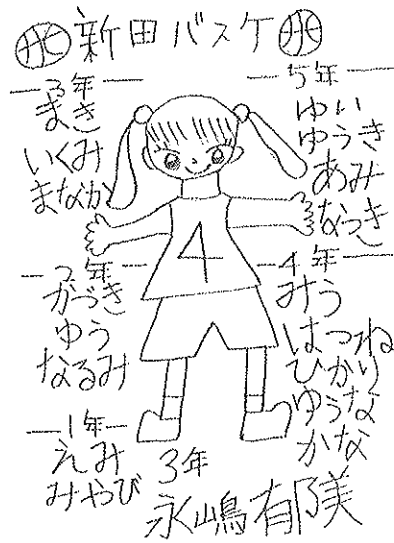 新田バスケ
3年
まき
いくみ
まなか
2年
がづき
ゆう
なるみ
1年
えみ
みやび
4
5年
ゆい
ゆうき
あみ
なつき
4年
みう
はつね
ひかり
ゆうな
かな
3年
永嶋有美